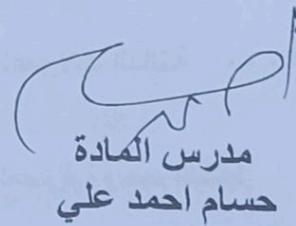 مدرس المادة
حسام احمد علي